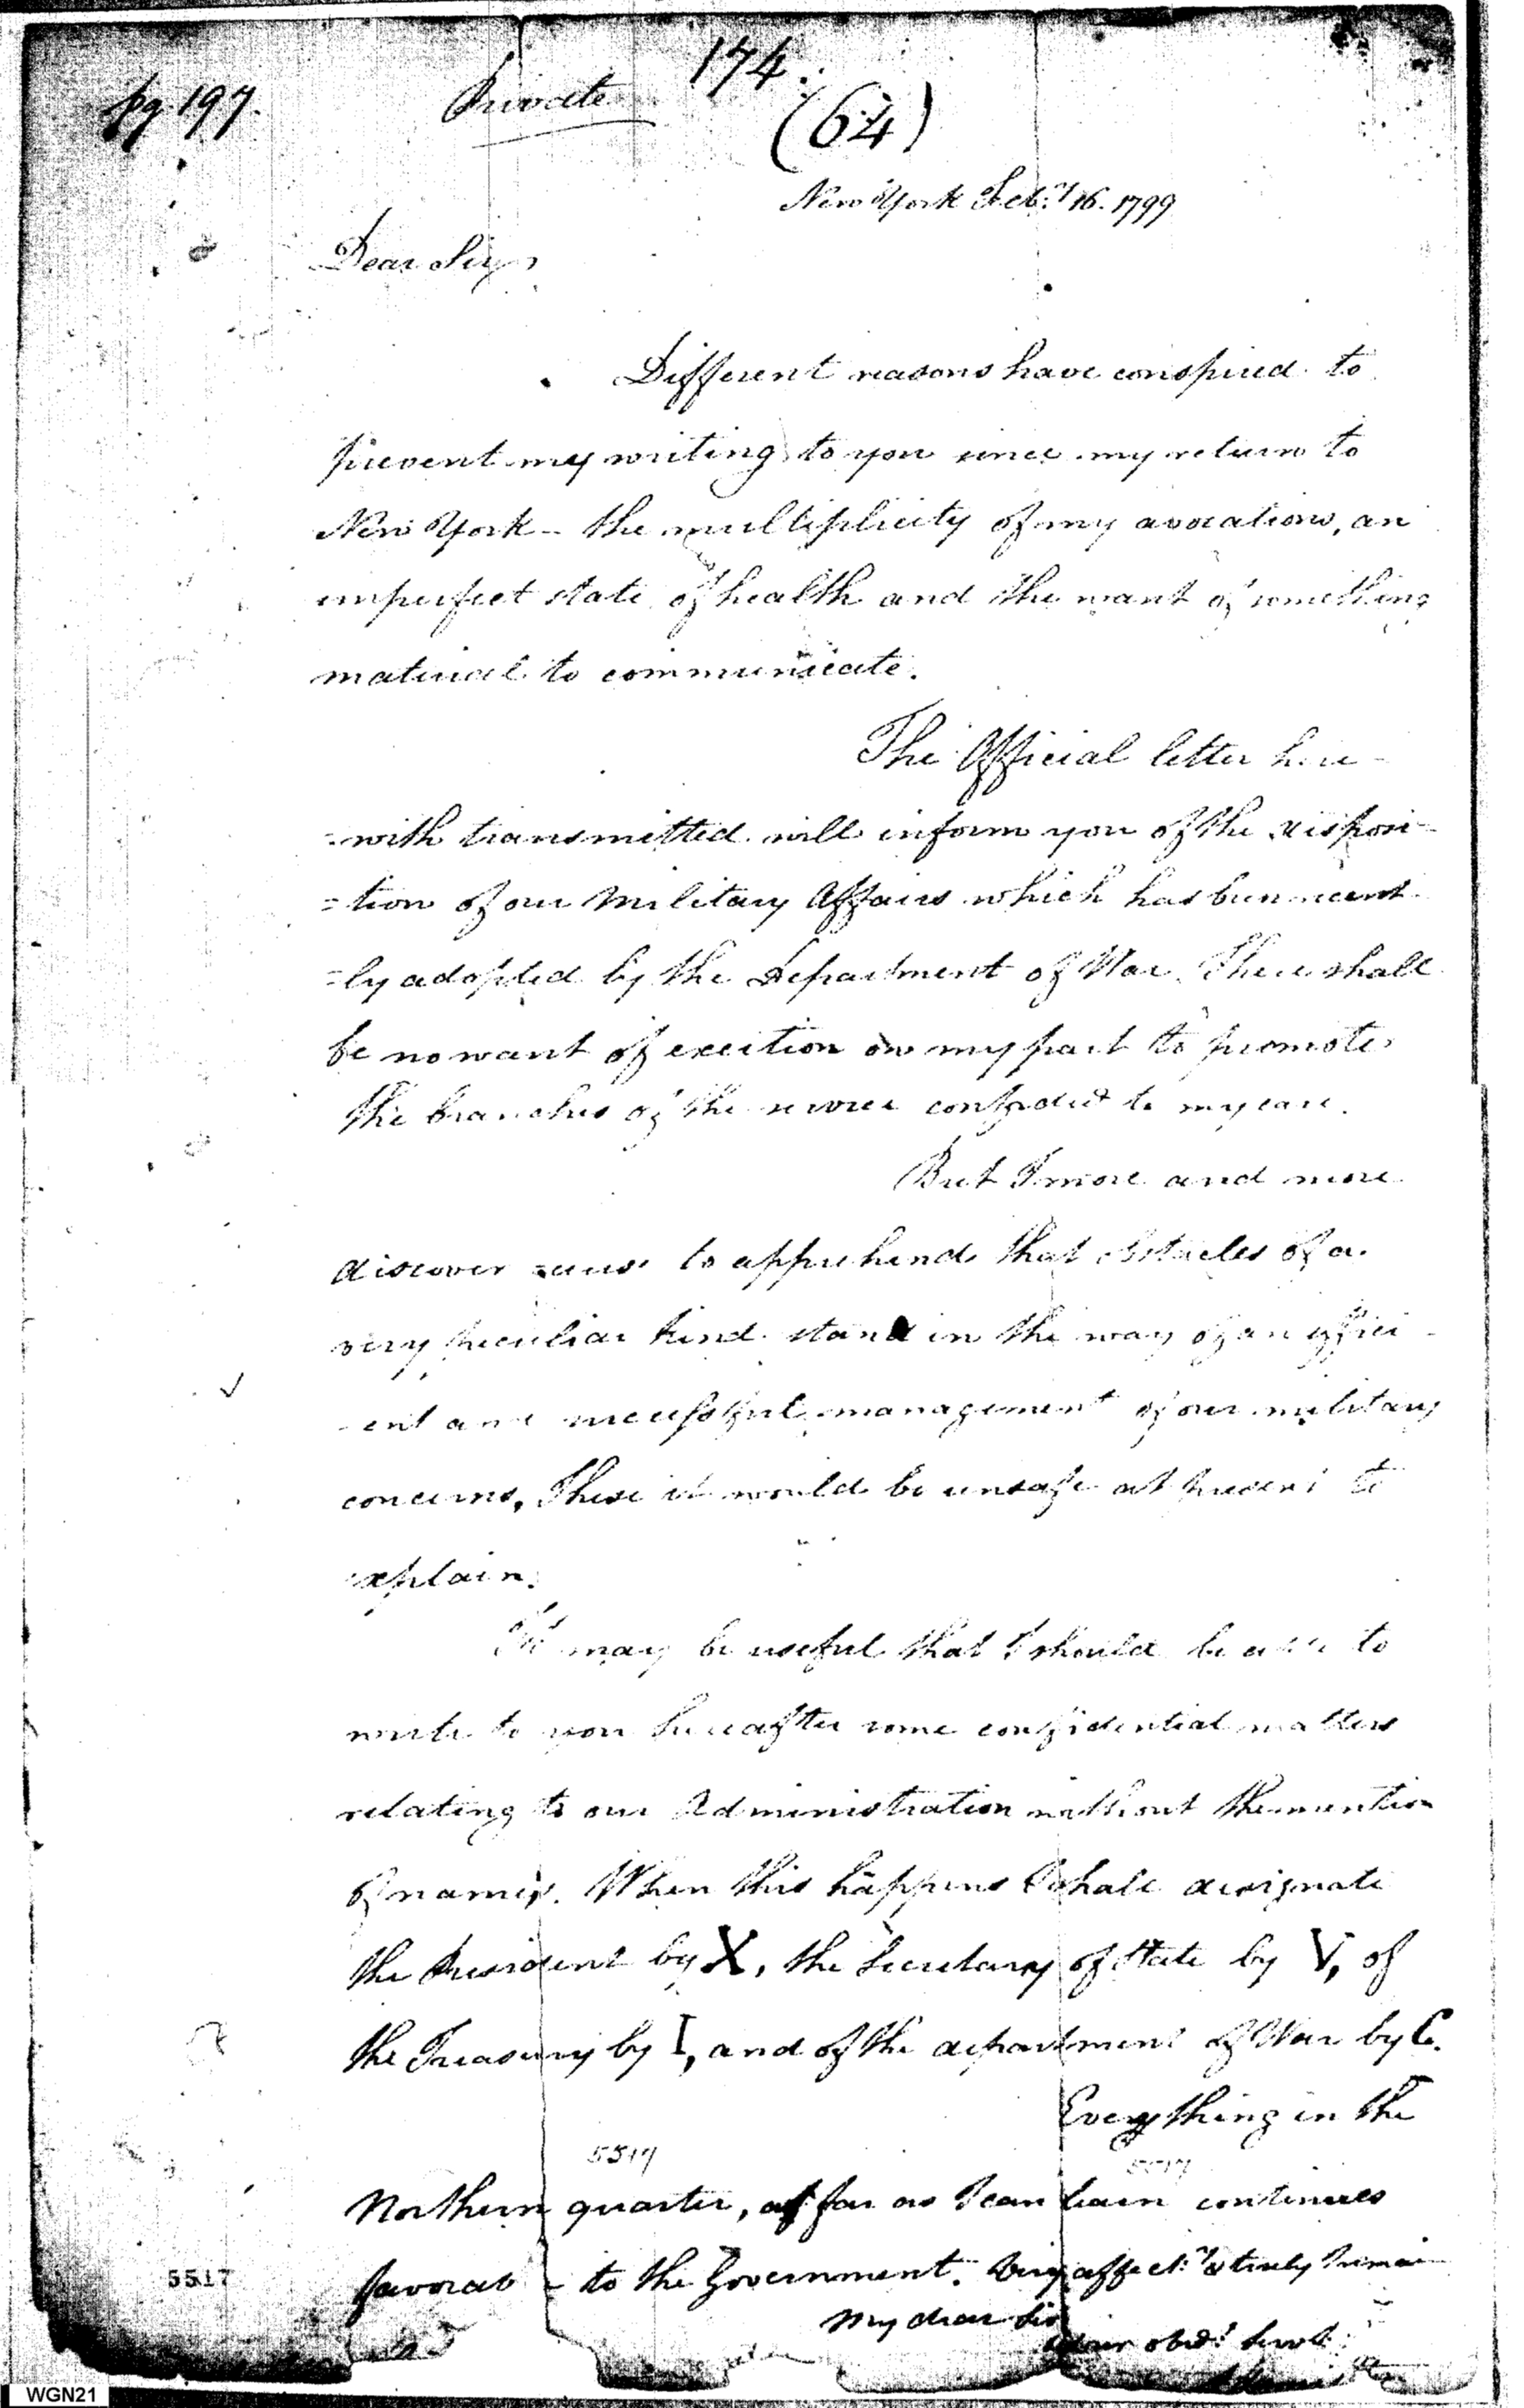 174.
pg. 197.
Private
(64)
New York Feb:y 16. 1799
Dear Sir,
Different reasons have conspired to
prevent my writing to you since my return to
New York - the multiplicity of my avocations, an
imperfect state of health and the want of something
material to communicate.
The Official letter here-
=with transmitted will inform you of the disposi-
=tion of our Military Affairs which has been recent
=ly adopted by the Department of War. There shall
be no want of exertion on my part to promote
the branches of the service confided to my care.
But I more and more
discover cause to apprehend that obstacles of a
very peculiar kind stand in the way of an effici-
-ent and successful management of our military
concerns. These it would be unsafe at present to
explain.
It may be useful that I should be able to
write to you hereafter some confidential matters
relating to our Administration without the mention
of names. When this happens I shall designate
the President by X, the Secretary of State by V, of
the Treasury by I, and of the department of War by C.
Everything in the
5517
5517
Northern quarter, as far as I can learn continues
favorab to the Government. Very affect:y & truly I remain
5517
My dear Sir
Your obed:t Servt.
WGN21